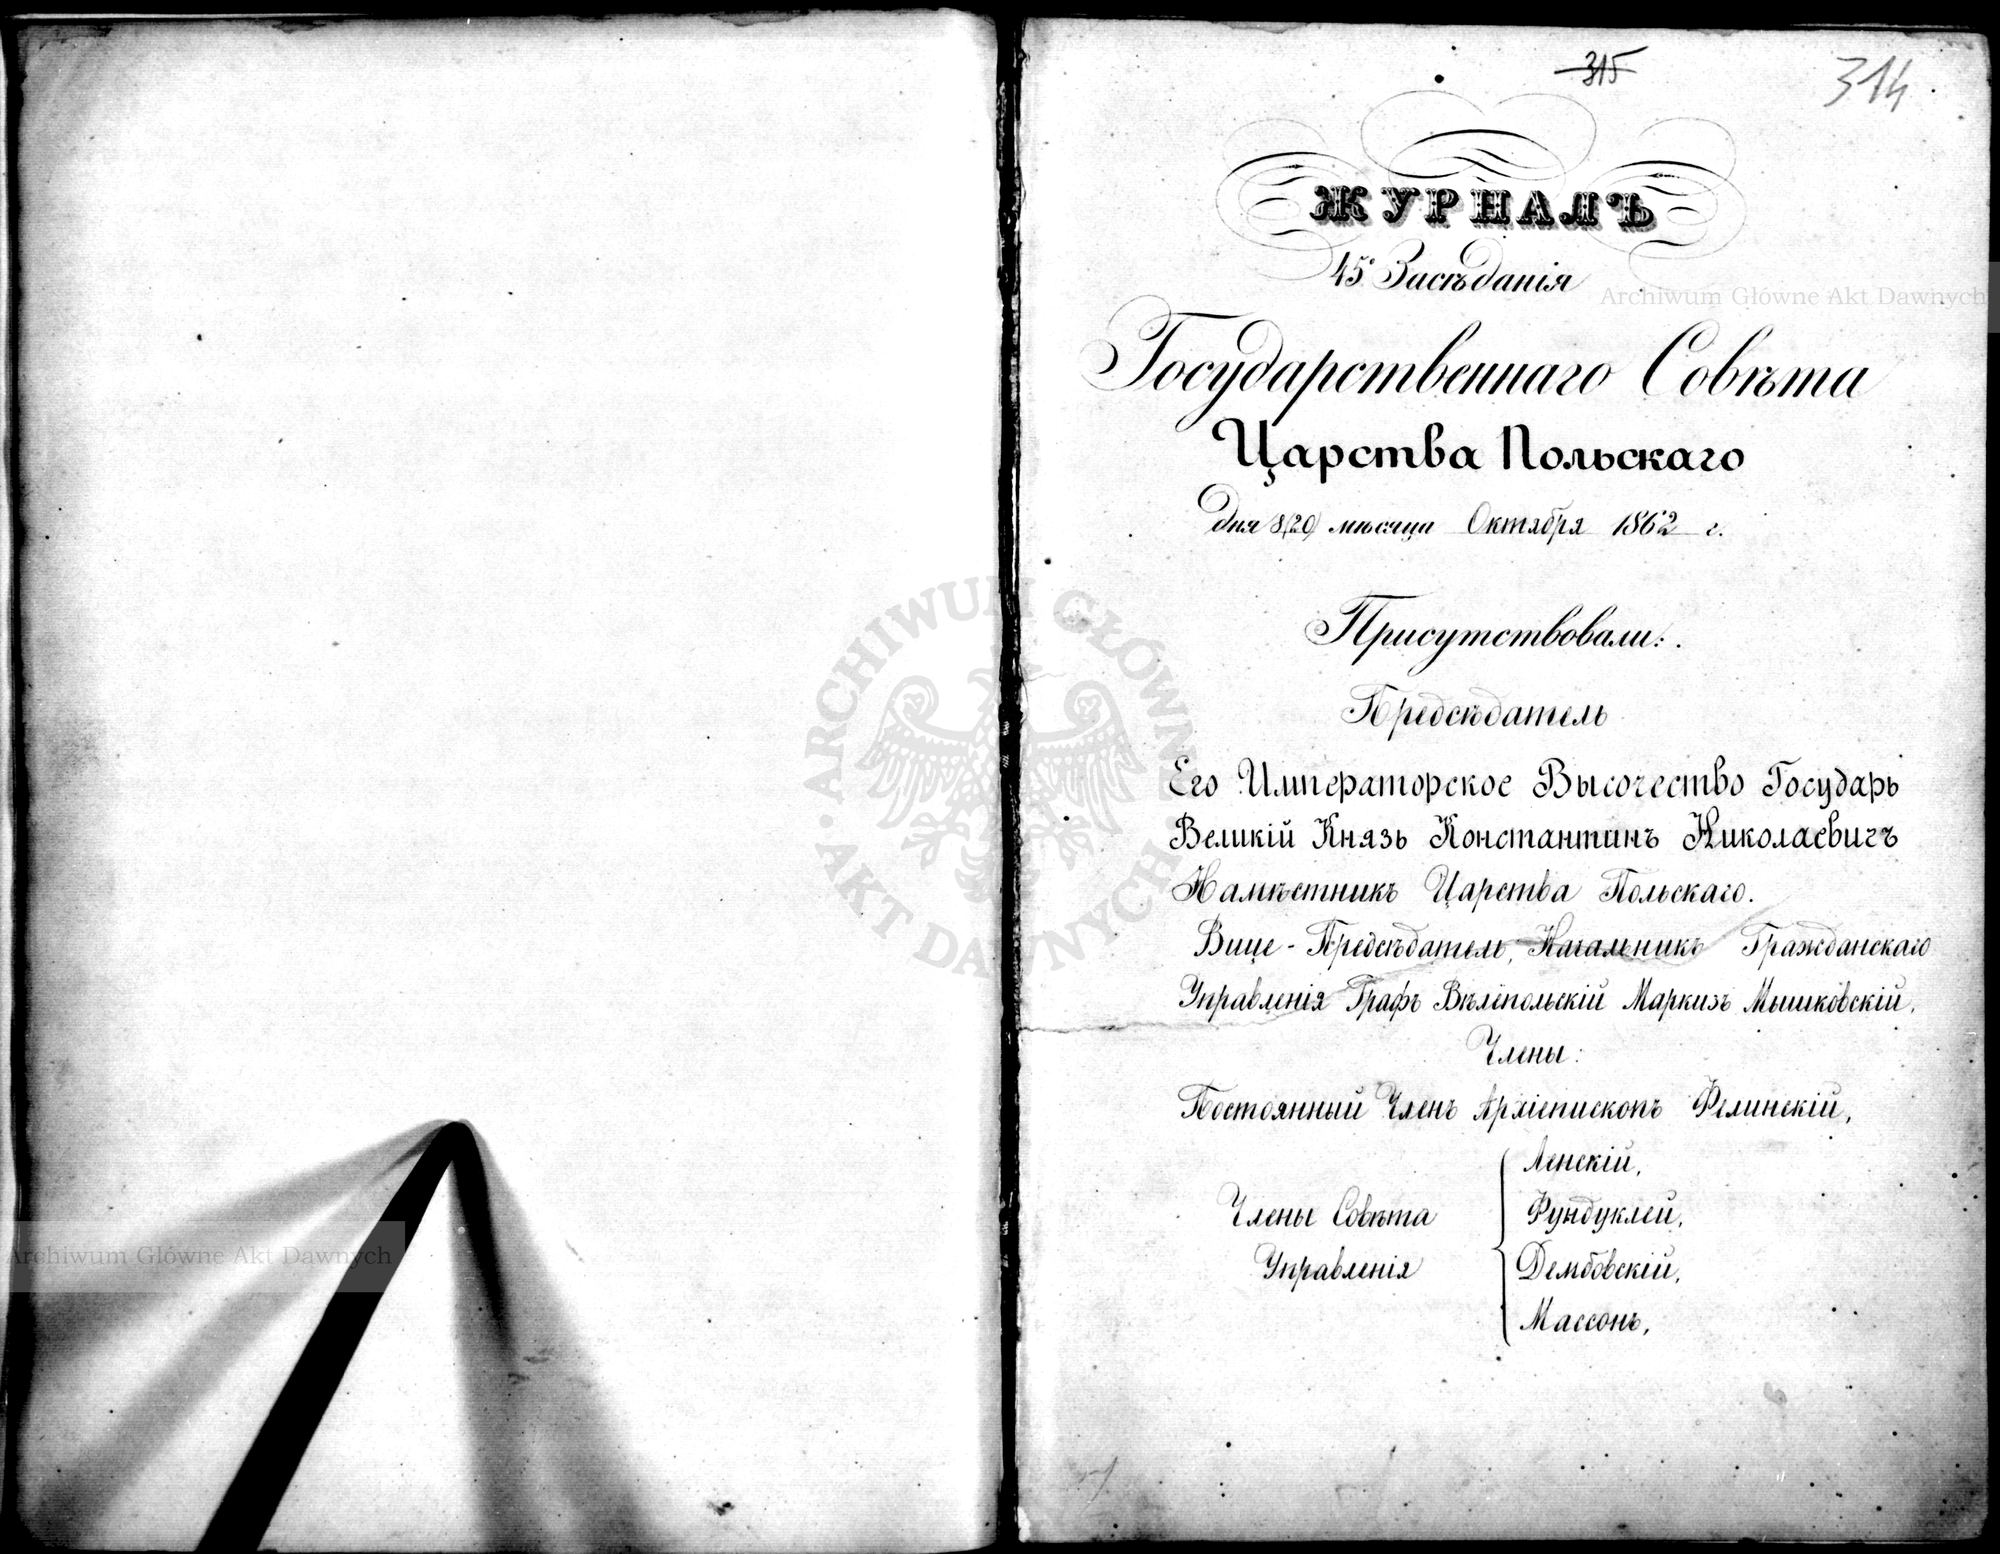 315
314
ЖУРНАЛЪ
45º Засѣданія
Государственнаго Совѣта
Царства Польскаго
дня 8(20) мѣсяца Октября 1862 г.
Присутствовали:
Предсѣдатель
Его Императорское Высочество Государь
Великій Князь Константинъ Николаевичъ
Намѣстникъ Царства Польскаго.
Вице-Предсѣдатель, Начальникъ Гражданскаго
Управленія Графъ Вѣлепольскій Маркизъ Мышковскій,
Члены:
Постоянный Членъ Архіепископъ Фелинскій,
Ленскій,
Члены Совѣта
Фундуклей,
Управленія
Дембовскій,
Массонъ,
Archiwum Główne Akt Dawnych
ARCHIWUM GŁÓWNE
AKT DAWNYCH
Archiwum Główne Akt Dawnych